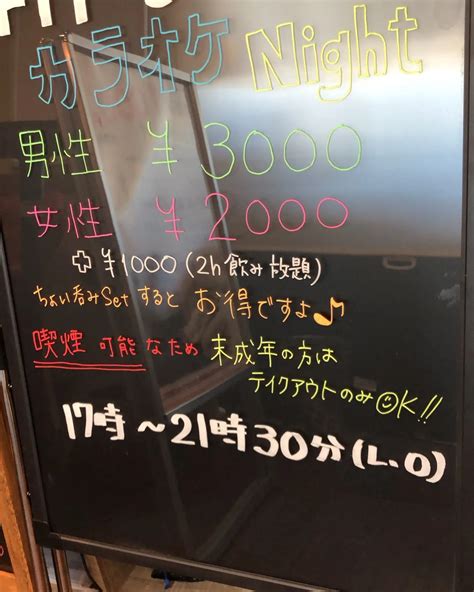 カラオケ Night
男性 ¥3000
女性 ¥2000
+ ¥1000 (2h 飲み放題)
ちょい呑みSet すると お得ですよ♪
喫煙 可能 なため 未成年の方は
テイクアウトのみ OK!!
17時～21時30分(L.O)